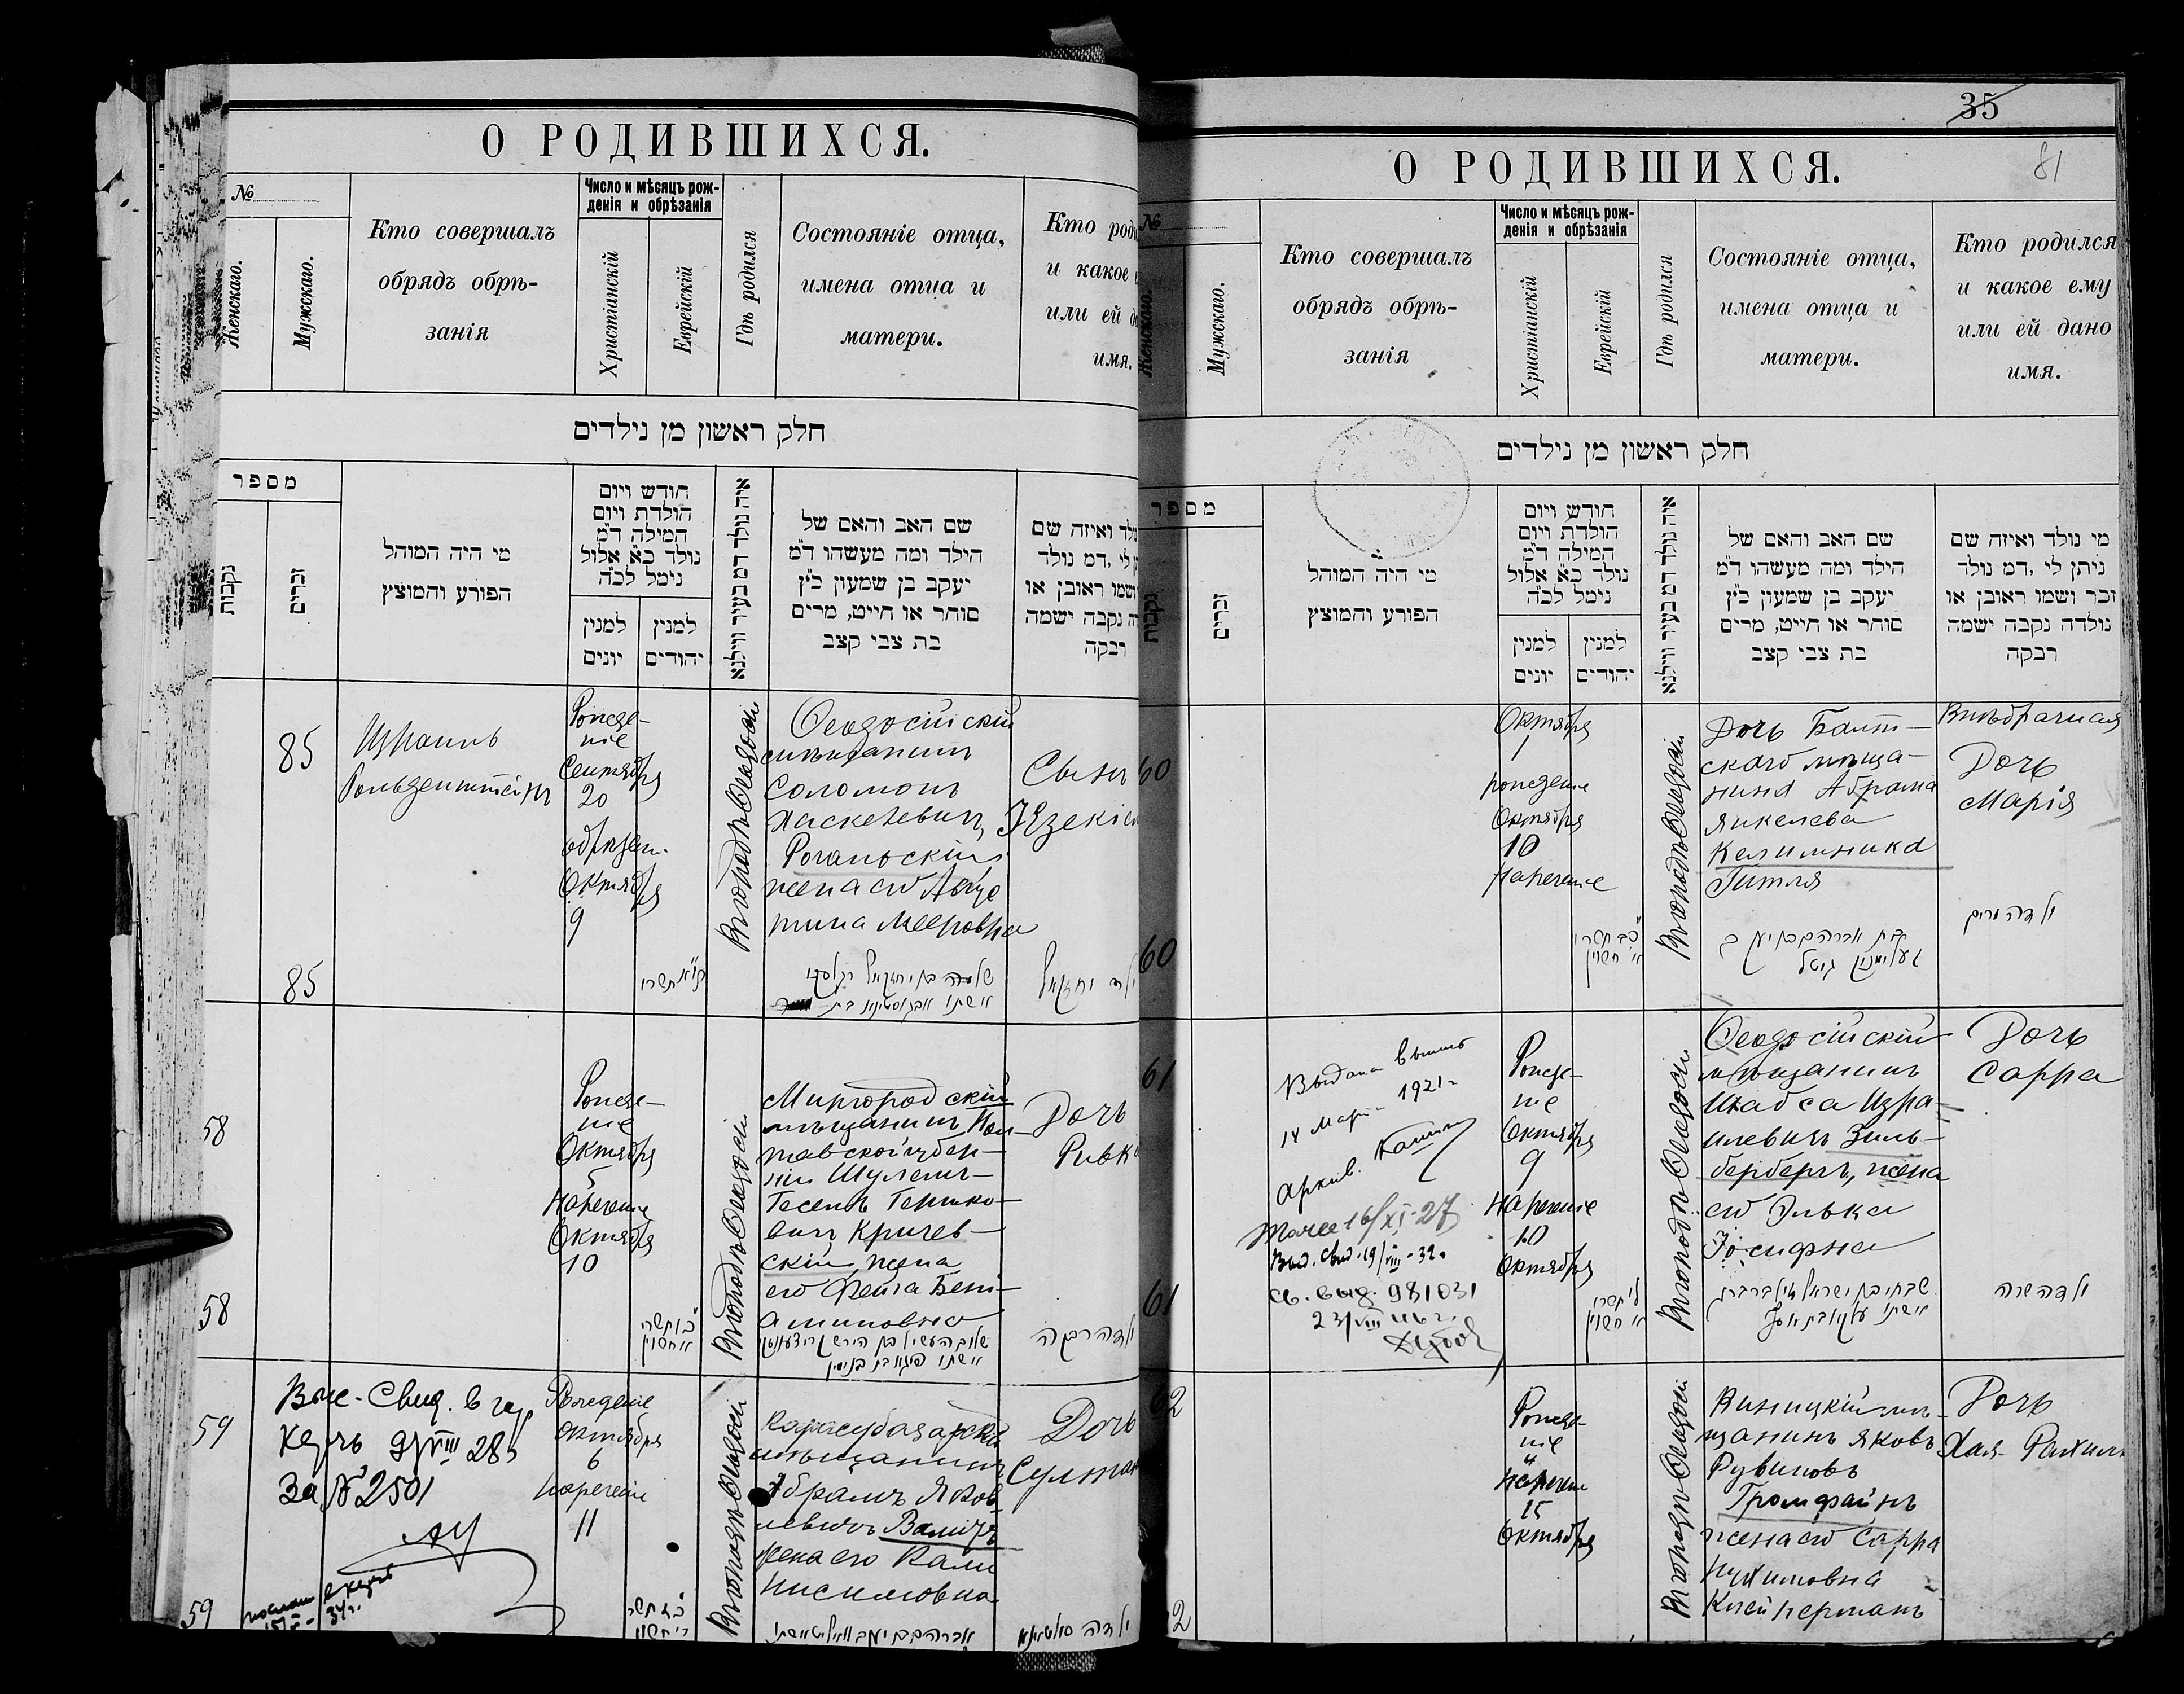 О РОДИВШИХСЯ.
№
Женскаго.
Мужскаго.
Кто совершалъ
обрядъ обрѣ-
занія
Число и мѣсяцъ рож-
денія и обрѣзанія
Христіанскій
Еврейскій
Гдѣ родился
Состояніе отца,
имена отца и
матери.
Кто роди
и какое е
или ей да
имя.
חלק ראשון מן נילדים
מספר
נקבות
זכרים
מי היה המוהל
הפורע והמוצץ
חודש ויום
הולדת ויום
המילה ד״מ
נולד כ״א אלול
נימל לכ״ה
למנין
יונים
למנין
יהודים
איה נולד דמ בעיר ווילנא
שם האב והאם של
הילד ומה מעשהו ד״מ
יעקב בן שמעון כ״ץ
סוחר או חייט, מרים
בת צבי קצב
ולד ואיזה שם
לי, דמ נולד
ושמו ראובן או
נקבה ישמה
רבקה
85
Израиль
Рожде-
ніе
Сентября
20
обрѣзан.
Октября
9
Въ городѣ Ѳеодосіи
Ѳеодосійскій
мѣщанинъ
Соломонъ
Хаскелевичъ
Рогальскій
жена его Авгу
стина Мееровна
Сынъ
Іезекіел
85
ילד יחזקאל
58
Рожде-
ніе
Октября
5
Нареченіе
Октября
10
Въ городѣ Ѳеодосіи
Миргородскій
мѣщанинъ Пол-
тавской губер-
ніи Шулемъ-
Гесель Гершко-
вичъ Кричев-
скій жена
его Фейга Бені-
аминовна
Дочь
Ривк
58
כ״ו תשרי
א׳ חשון
אישתו פיגא בת בנימין
ילדה רבקה
59
Вые. Свид. в гор
Керчь
За № 2501
Рожденіе
октября
6
нареченіе
11
Въ городѣ Ѳеодосіи
Карасубазарскій
мѣщанинъ
Абрамъ Яков-
левичъ Валитъ
жена его Кали
Нисимовна
Дочь
Султан
59
כ״ז תשרי
ב׳ חשון
35
81
О РОДИВШИХСЯ.
№
Женскаго.
Мужскаго.
Кто совершалъ
обрядъ обрѣ-
занія
Число и мѣсяцъ рож-
денія и обрѣзанія
Христіанскій
Еврейскій
Гдѣ родился
Состояніе отца,
имена отца и
матери.
Кто родился
и какое ему
или ей дано
имя.
חלק ראשון מן נילדים
מספר
נקבות
זכרים
מי היה המוהל
הפורע והמוצץ
חודש ויום
הולדת ויום
המילה ד״מ
נולד כ״א אלול
נימל לכ״ה
למנין
יונים
למנין
יהודים
איה נולד דמ בעיר ווילנא
שם האב והאם של
הילד ומה מעשהו ד״מ
יעקב בן שמעון כ״ץ
סוחר או חייט, מרים
בת צבי קצב
מי נולד ואיזה שם
ניתן לי, דמ נולד
זכר ושמו ראובן או
נולדה נקבה ישמה
רבקה
60
Октября
1
рожденіе
Октября
10
нареченіе
Въ городѣ Ѳеодосіи
Дочь Балт-
скаго мѣща-
нина Абрама
Янкелева
Келимника
Гитля
Внѣбрачная
Дочь
Марія
60
כ״ב תשרי
א׳ חשון
ילדה מרים
61
Выдана выпись
14 Март 1921 г
Архив.
Тоже 16/XI-27
Выд. Свид. 19/VIII-32 г.
св. выд. 981031
Рожде-
ніе
Октября
9
Нареченіе
10
Октября
Въ городѣ Ѳеодосіи
Ѳеодосійскій
мѣщанинъ
Шабса Изра-
илевичъ Зиль-
берберъ, жена
его Элька
Іосифна
Дочь
Сарра
61
ל׳ תשרי
א׳ חשון
ילדה שרה
62
Рожде-
ніе
4
Наречен
15
Октября
Въ городѣ Ѳеодосіи
Виницкій мѣ-
щанинъ Яковъ
Рувиновъ
Громфайнъ
жена его Сарра
Нухимовна
Клейнерманъ
Дочь
Хая-Рахиль
2